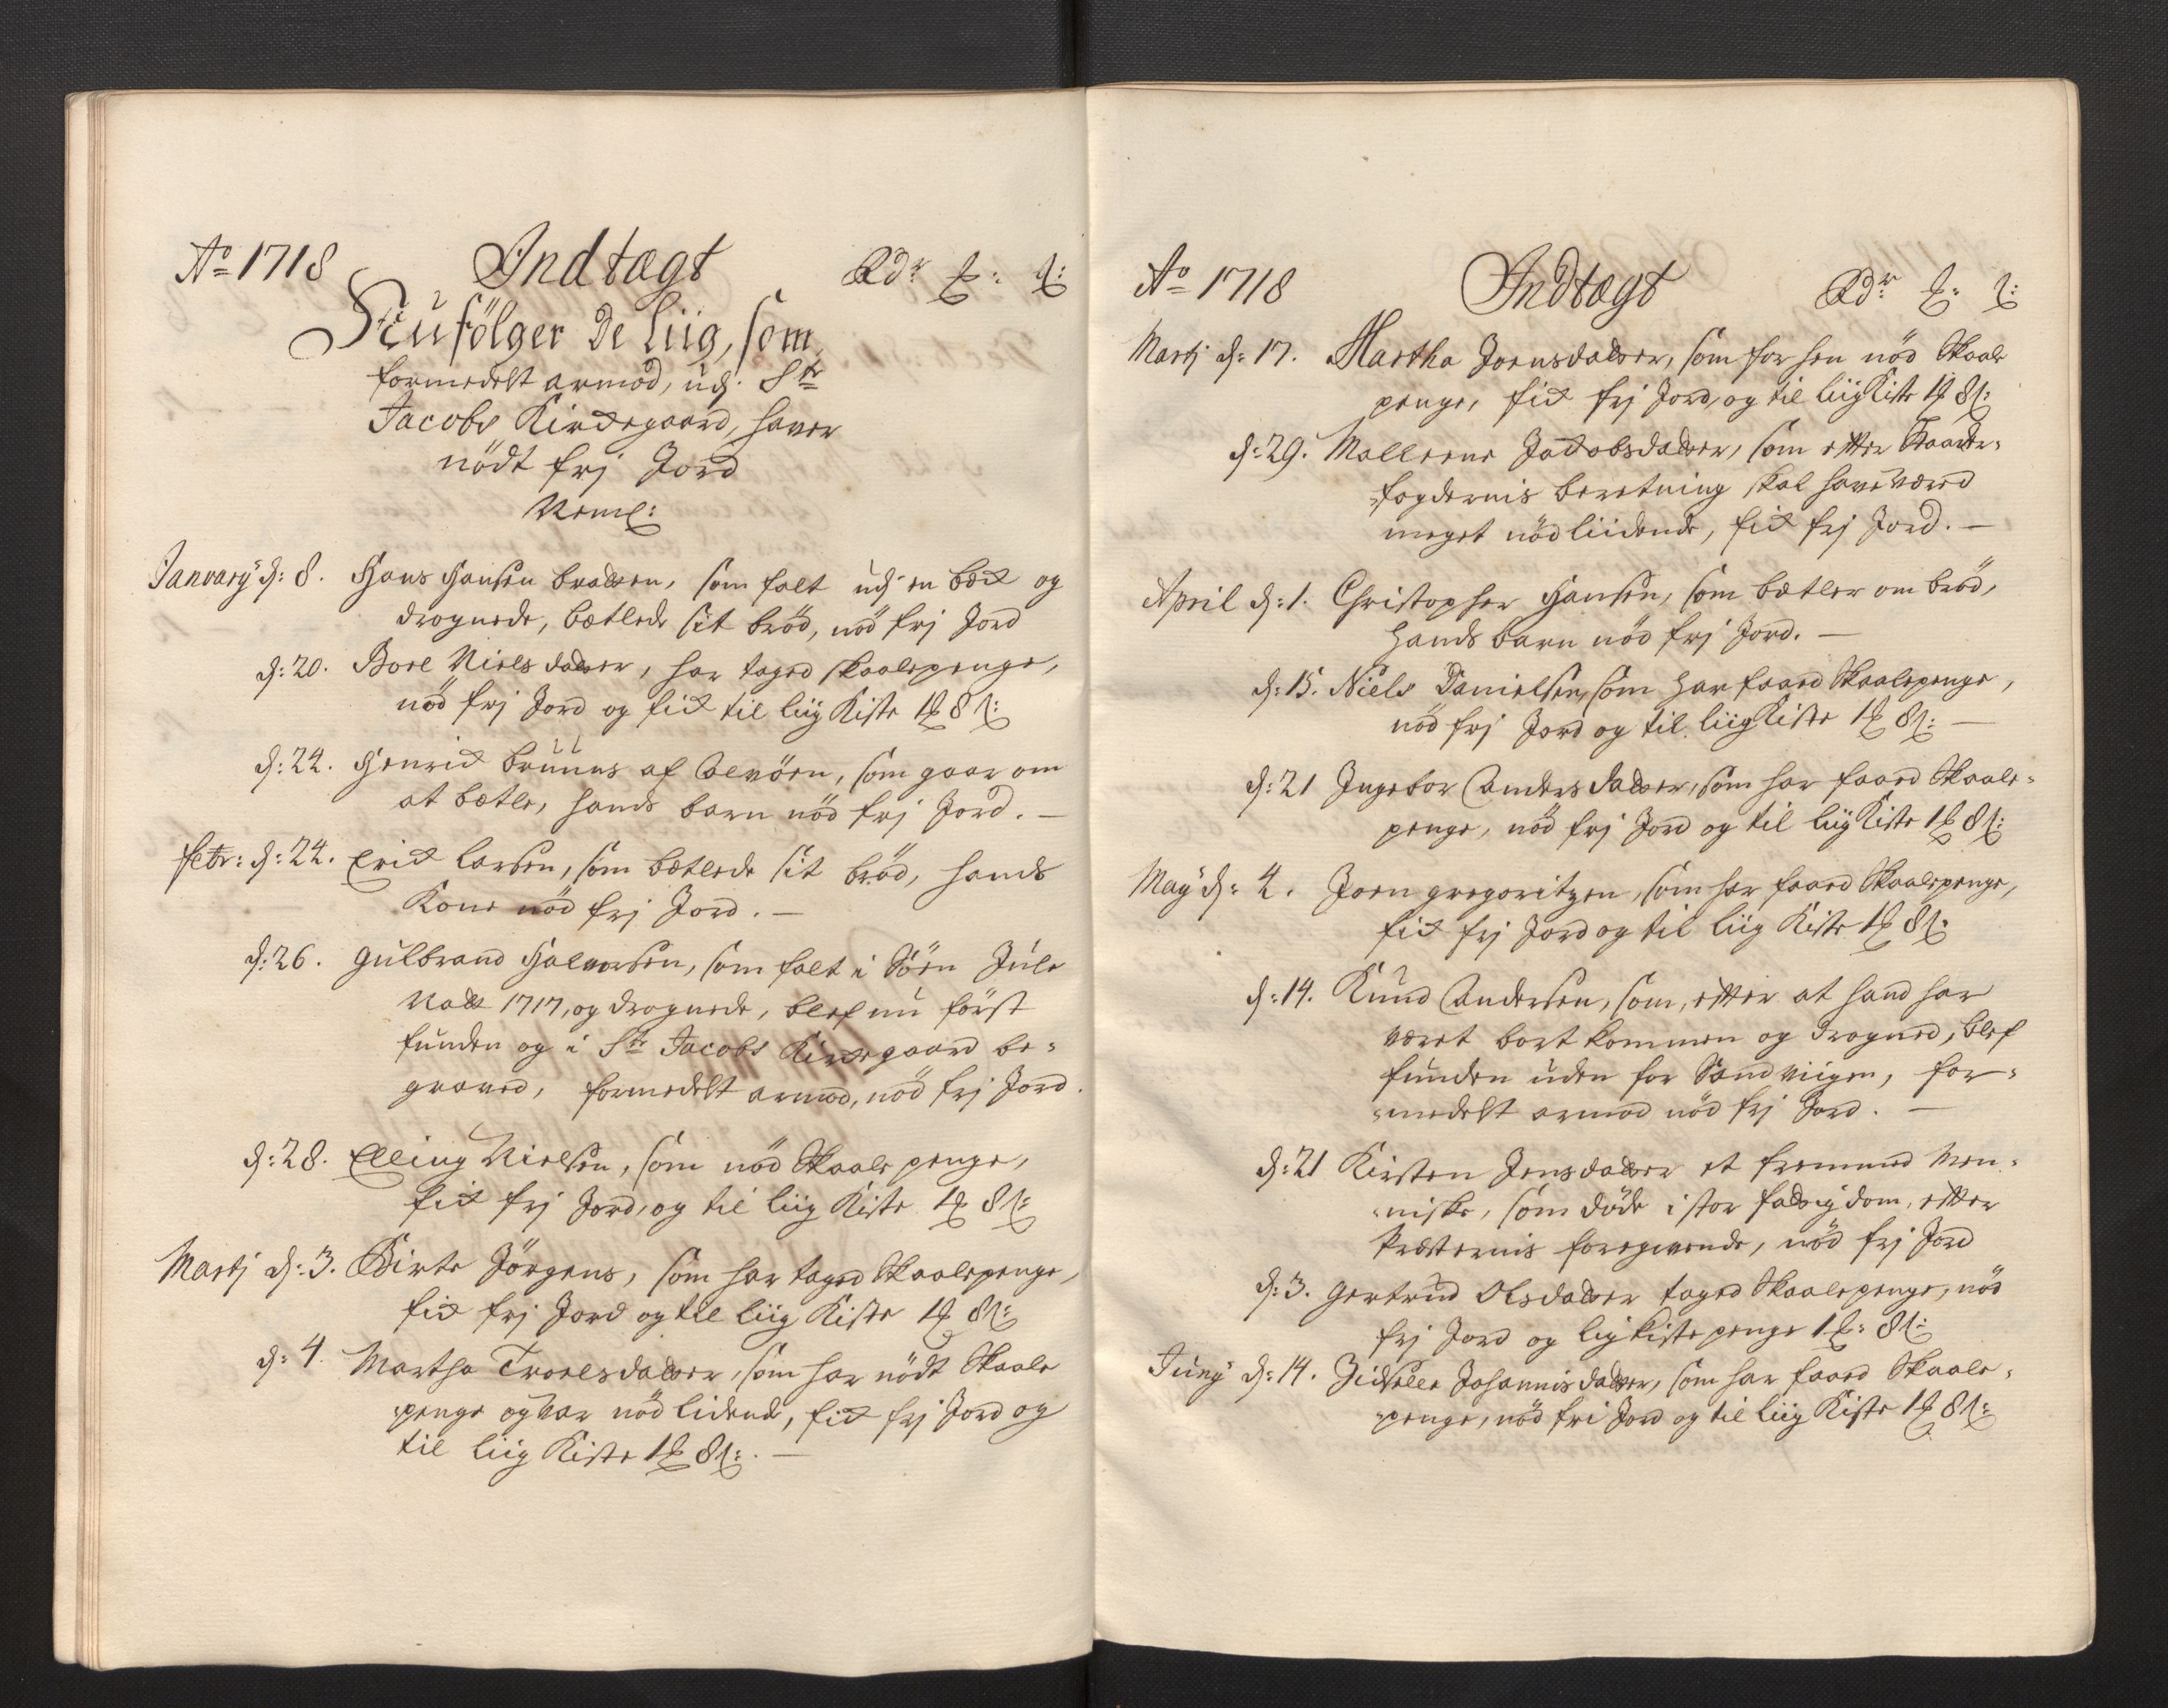 Ao 1718 Indtægt Rdr ℔: ß:
Nu fölger De Liig, som
formedelst armod, udj Ste
Jacobs Kirckegaard, haver
nödt frj Jord
Neml:
Januarÿ d: 8. Hans Hansen bracken, som falt udj en bæck og
drognede, bætlede sit bröd, nöd frj Jord
d: 20. Boel Nielsdatter, har taged skaalepenge,
nöd frj Jord og fick til liig Kiste 1 ℔ 8 ß:
d: 22. Henrick bruuns af Alvöen, som gaar om
at bætle, hands barn nöd frj Jord. —
febr: d: 22. Erick Larsen, som bætlede sit bröd, hands
Kone nöd frj Jord. —
d: 26. Gulbrand Halvorsen, som falt i Söen Jule
Natt 1717, og drognede, blef nu först
funden og i Ste Jacobs Kirckegaard be=
graved, formedelst armod, nöd frj Jord.
d: 28. Elling Nielsen, som nöd Skaale penge,
fick frj Jord, og til liig Kiste 1 ℔ 8 ß:
Martj d: 3. Birte Jörgens, som har taged Skaalepenge,
fick frj Jord og til liig Kiste 1 ℔ 8 ß:
d: 4. Martha Troelsdatter, som har nödt Skaale
penge og var nödlidende, fick frj Jord og
til liig Kiste 1 ℔ 8 ß: . —
Ao 1718 Indtægt Rdr: ℔: ß:
Martj d: 17. Martha Joensdatter, som for hen nöd Skaale
penge, fick frj Jord, og til liigKiste 1 ℔ 8 ß:
d: 29. Mallene Jackobsdatter, som efter
fogdernis beretning skal have værd
meget nödliidende, fick frj Jord. —
April d: 1. Christopher Hansen, som bætler om bröd,
Hands barn nöd frj Jord. —
d: 15. Niels Danielsen, som har faaed Skaalepenge,
nöd frj Jord og til liigKiste 1 ℔ 8 ß: —
d: 21 Ingebor Andersdatter, som har faaed Skaale=
penge, nöd frj Jord og til liigKiste 1 ℔ 8 ß:
Maÿ d: 2. Joen gregoritzen, som har faaed Skaalepenge,
fick frj Jord og til liig Kiste 1 ℔ 8 ß:
d: 14. Knud Andersen, som, efter at hand har
været bort kommen og drogned, blef
funden uden for Sandviigen, for=
=medelst armod nöd frj Jord. —
d: 21 Kirsten Jensdatter et fremmed Men=
=niske, som döde i stor fattigdom, efter
Præsternis foregivende, nöd frj Jord
d: 3. Gertrud Olsdatter taged Skaalepenge, nöd
frj Jord og ligkiste penge 1 ℔: 8 ß:
Junÿ d: 14. Zidselle Johannisdatter, som har faaed Skaale=
=penge, nöd fri Jord og til liig Kiste 1 ℔ 8 ß: